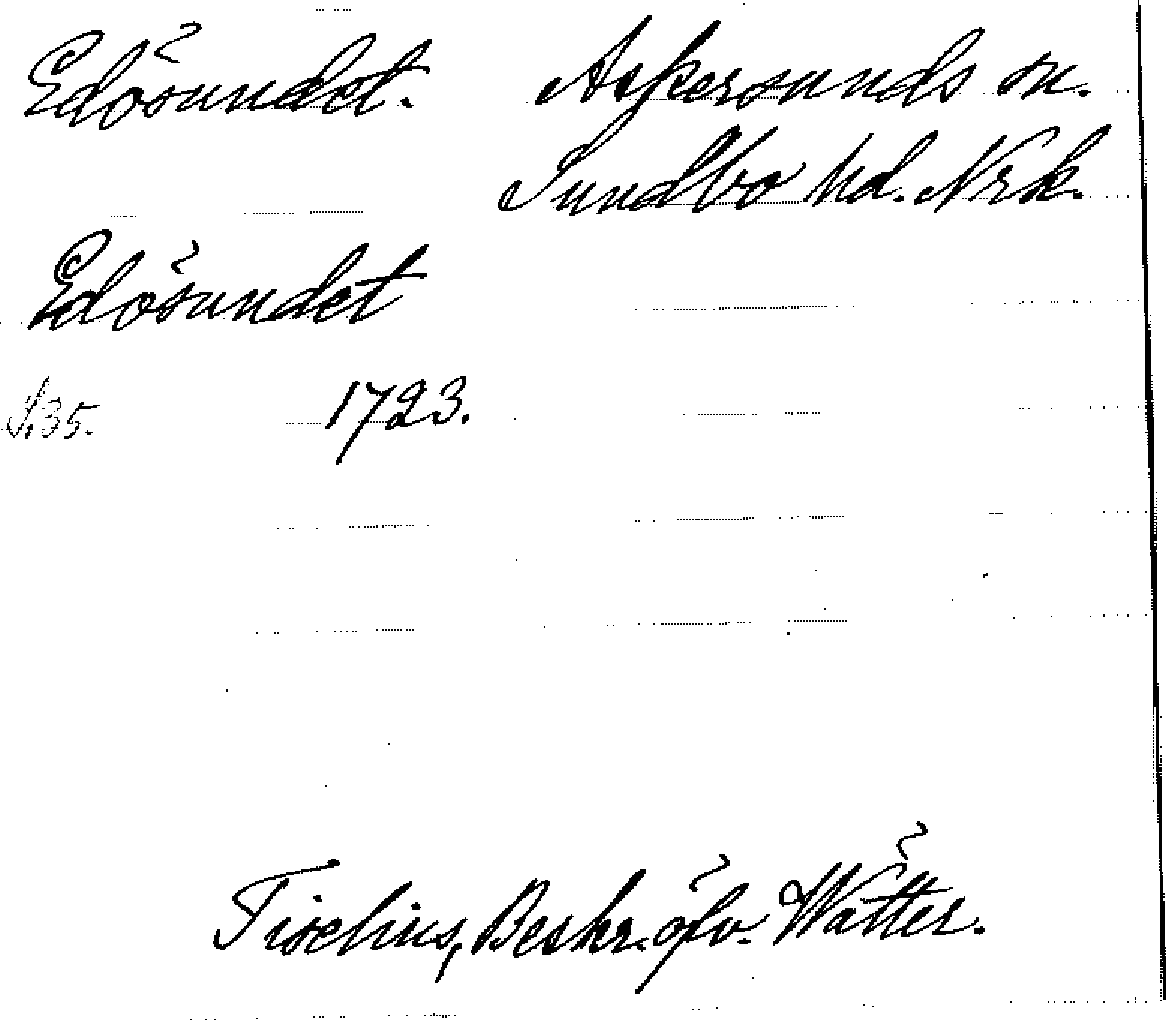 Edösundet. Askersunds sn.
Sundbo hd. Nrk.
Edösundet
S. 35. 1723.
Tiselius, Beskr. öfv. Wätter.